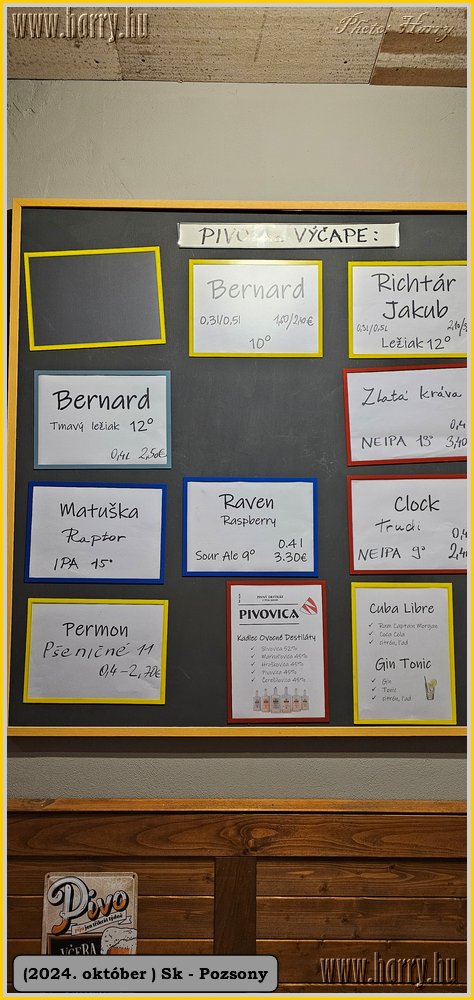 www.harry.hu
Photo: Harry
PIVO NA VÝČAPE:
Bernard
0,3l/0,5l
10°
Richtár
Jakub
0,3l/0,5l
Ležiak 12°
Bernard
Tmavý ležiak 12°
0,4l 2,50€
Zlatá kráva
0,4
NEIPA 13° 3,40
Matuška
Raptor
IPA 15°
Raven
Raspberry
0.4l
Sour Ale 9° 3.30€
Clock
Trudi
0,4
NEIPA 9°
Permon
Pšeničné 11
0,4-2,70€
PIVOVICA
Kadlec Ovocné Destiláty
Slivovica 52%
Marhuľovica 45%
Hruškovica 45%
Pivovica 45%
Čerešňovica 45%
Cuba Libre
Rum Captain Morgan
Coca Cola
citrón, ľad
Gin Tonic
Gin
Tonic
citrón, ľad
Pivo
VČERA
(2024. október ) Sk - Pozsony
www.harry.hu